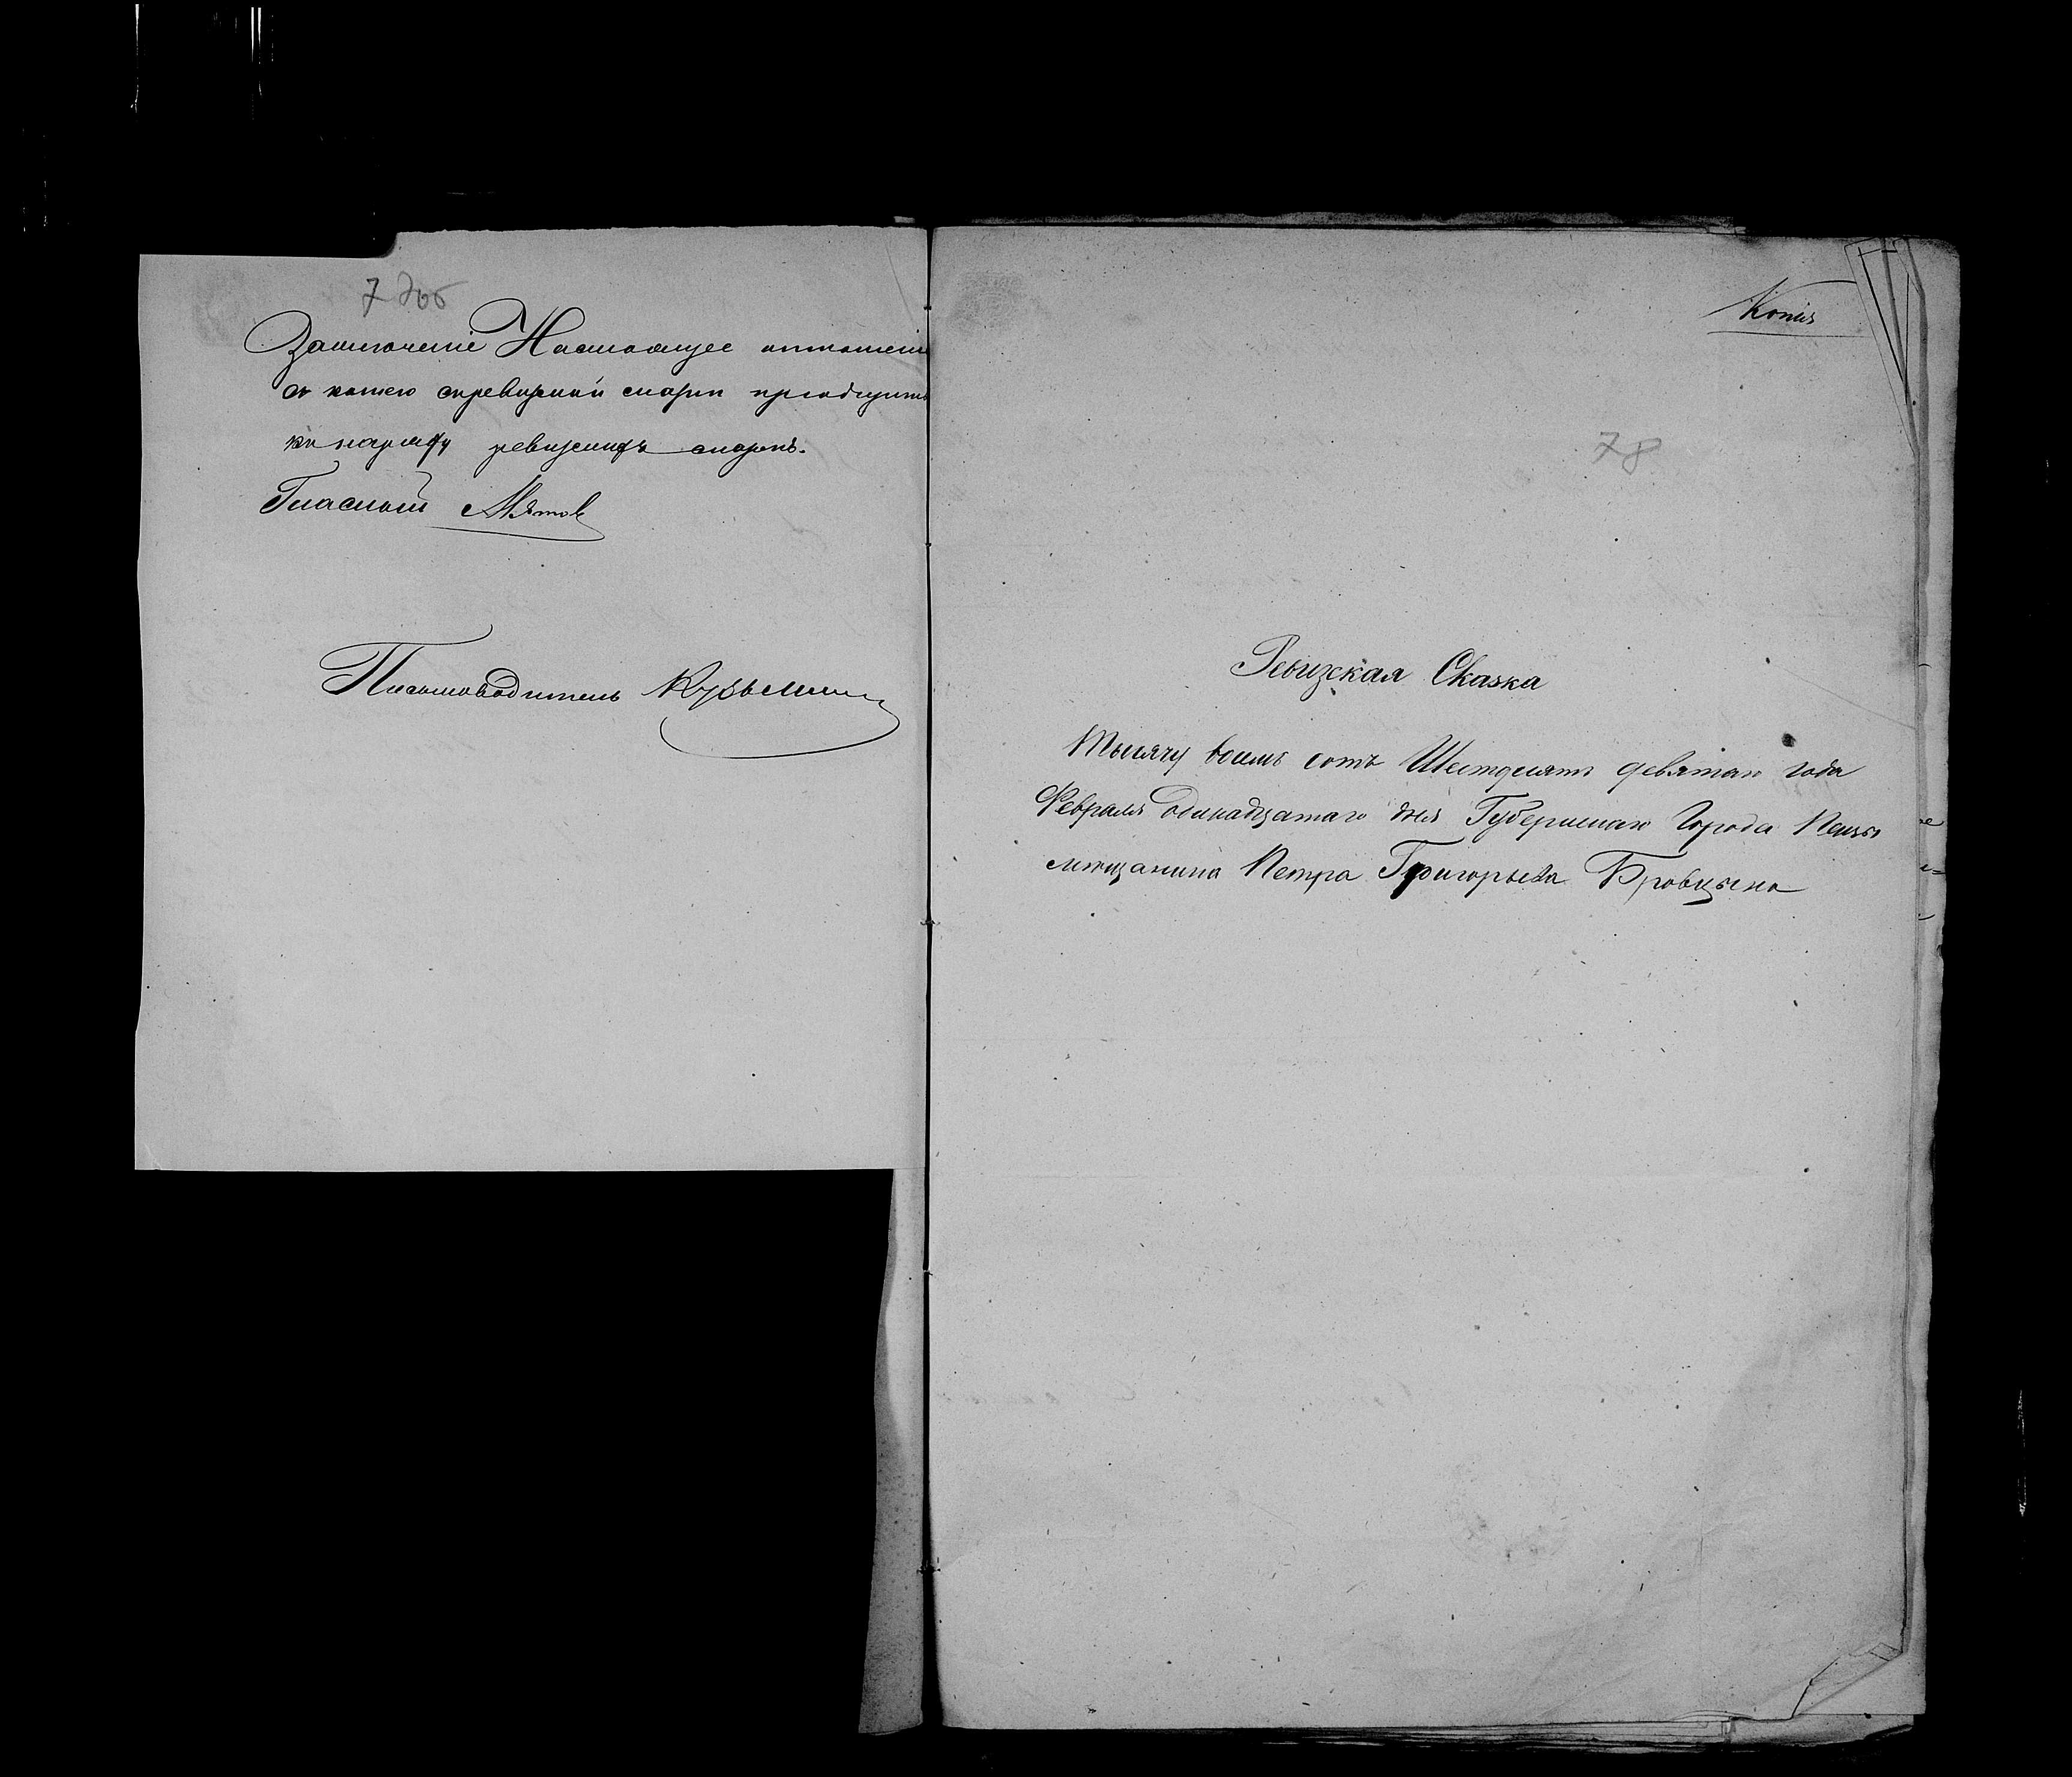 7 об
Заключеніе Настоящее отношеніе
съ копіею съ ревизской сказки пріобщить
къ наряду ревизскихъ сказокъ.
Гласный
Письмоводитель Кузьмин
Копія
78
Ревизская Сказка
Тысячу восемь сотъ Шестдесятъ девятаго года
Февраля одинадцатаго дня Губернскаго Города Пензы
мѣщанина Петра Григорьева Бровцына